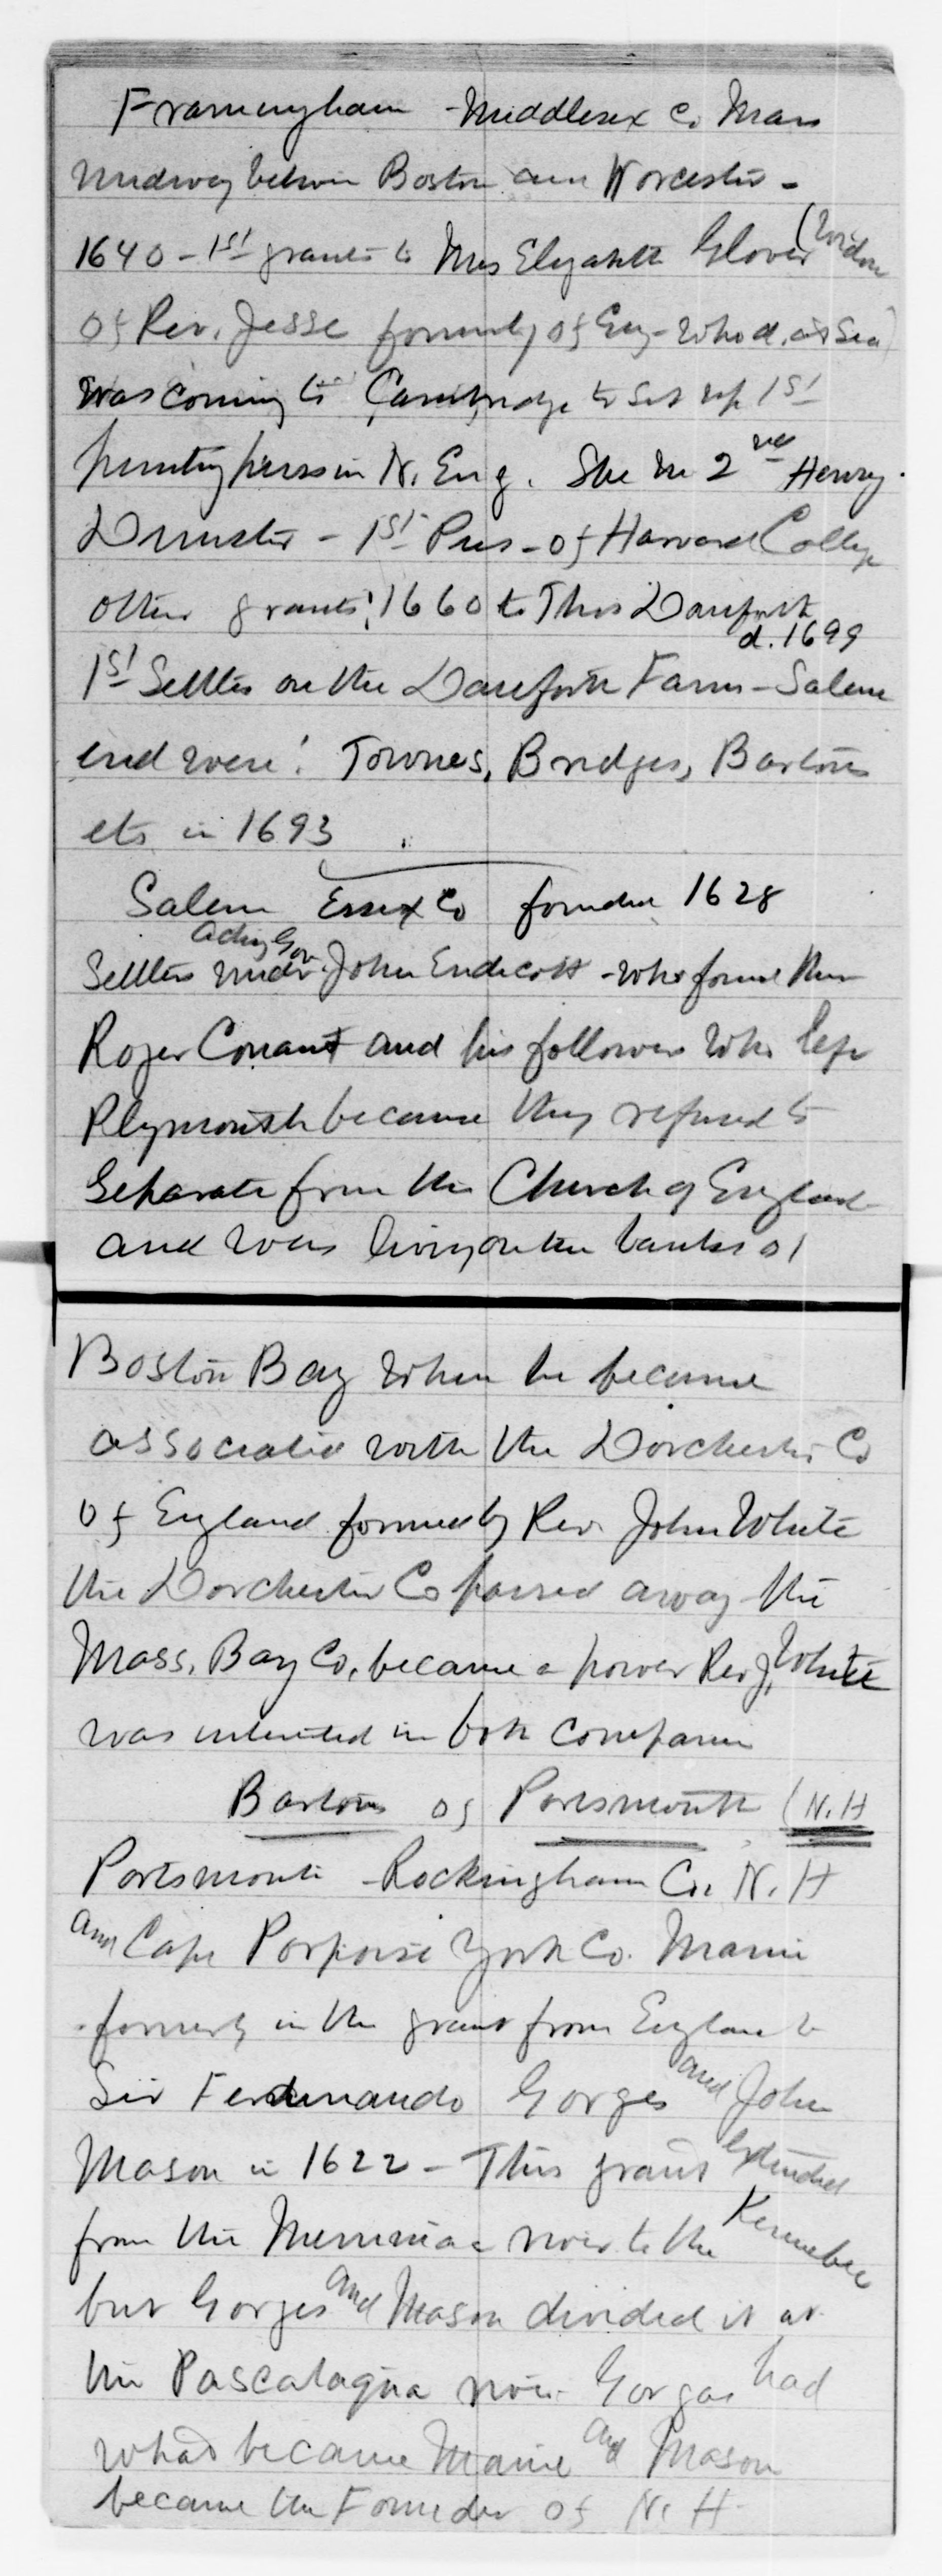 Framingham - Middlesex Co Mass
midway between Boston and Worcester -
1640 - 1st grants to Mrs Elizabeth Glover (widow
of Rev. Jesse formerly of Eng - who d. at Sea)
was coming to Cambridge to set up 1st
printing press in N. Eng. She m 2nd Henry
Dunster - 1st Pres - of Harvard College
other grants: 1660 to Thos Danforth
d. 1699
1st Settlers on the Danforth Farm - Salem
end were: Townes, Bridges, Bartons
etc in 1693
Salem Essex Co founded 1628
Settlers under Acting Gov. John Endicott - who found there
Roger Conant and his followers who left
Plymouth because they refused to
Separate from the Church of England
and was living on the banks of
Boston Bay when he became
associated with the Dorchester Co
of England formed by Rev. John White
the Dorchester Co passed away the
Mass. Bay Co. became a power Rev J. White
was interested in both companies
Bartons of Portsmouth (N.H
Portsmouth - Rockingham Co. N. H
and Cape Porpoise York Co. Maine
formerly in the grant from England to
Sir Ferdinando Gorges and John
Mason in 1622 - This grant extended
from the Merrimac river to the Kennebec
but Gorges and Mason divided it at
the Pascataqua river Gorgas had
what became Maine and Mason
became the Founder of N. H.